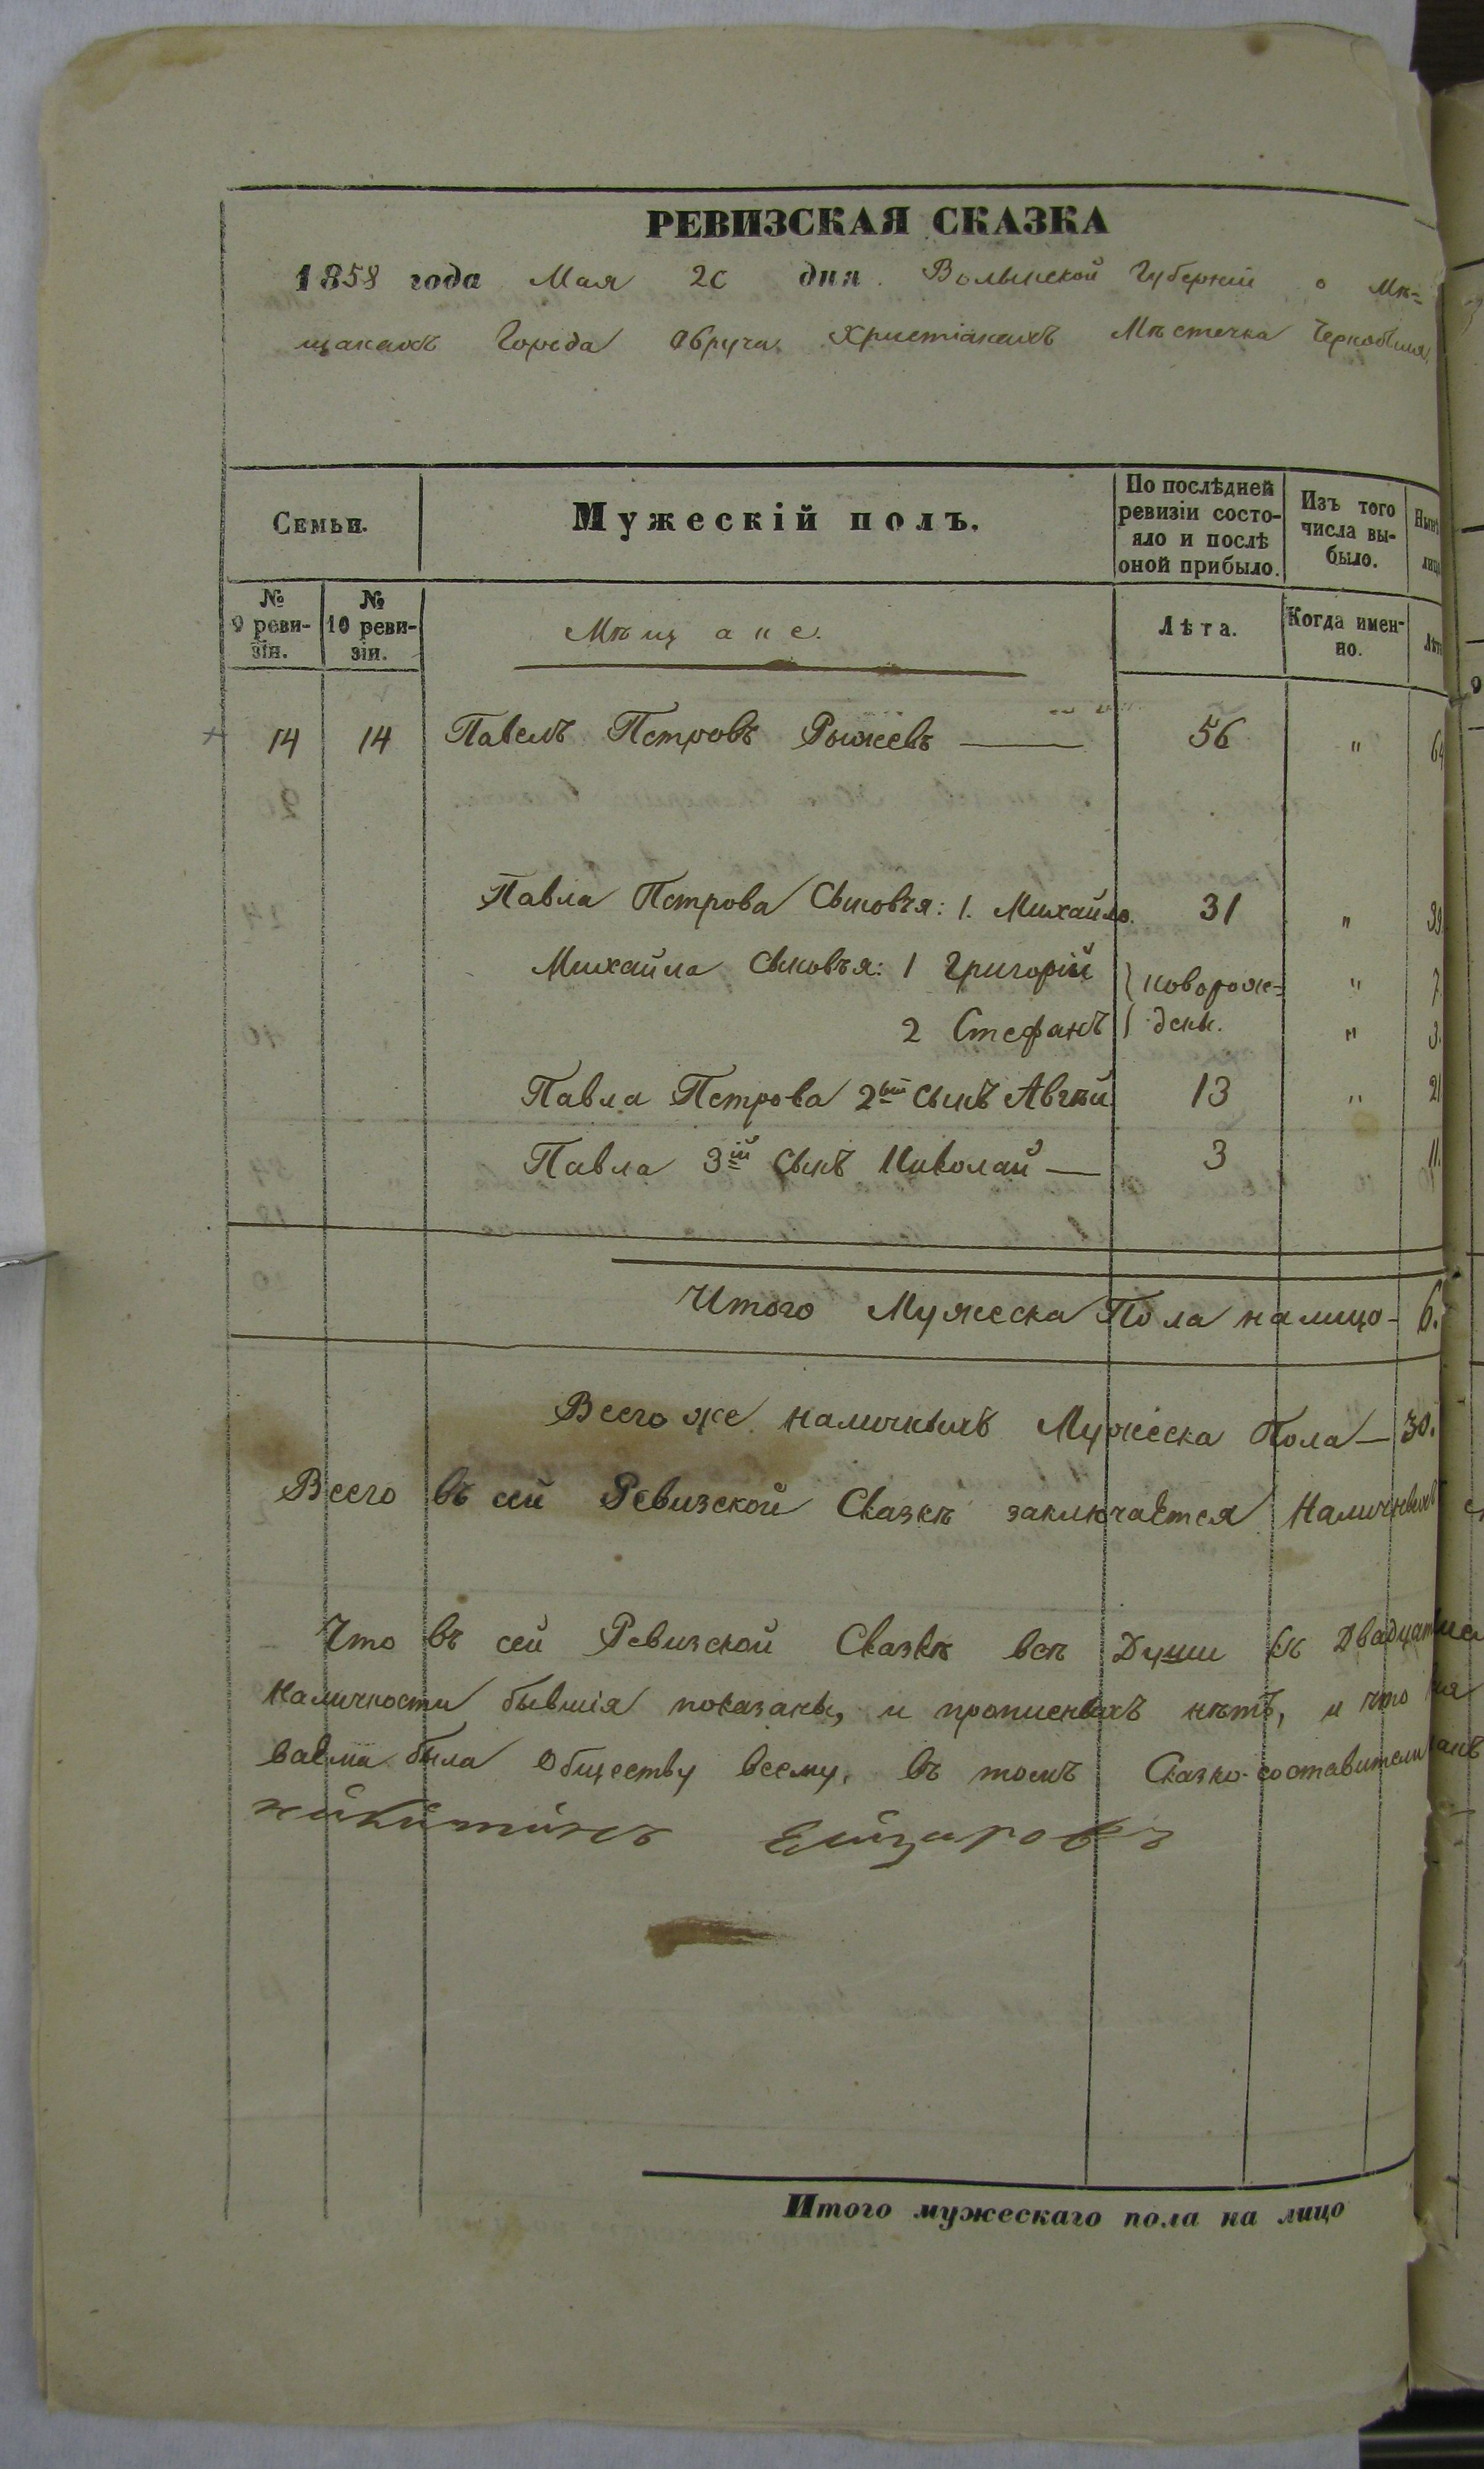 РЕВИЗСКАЯ СКАЗКА
1858 года Мая 20 дня Волынской Губерніи о мѣ=
щанахъ Города Овруча Христіанахъ Мѣстечка Чернобыля
Семьи.
Мужескій полъ.
По послѣдней ревизіи состо-
яло и послѣ оной прибыло.
Изъ того числа вы-
было.
№ 9 реви-
зіи.
№ 10 реви-
зіи.
Мѣщане.
Лѣта.
Когда имен-
но.
14 14 Павелъ Петровъ Рыжевъ — 56 " 64
Павла Петрова Сыновья: 1. Михайло. 31 " 39
Михайла Сыновья: 1 Григорій } новорож= " 7.
2 Стефанъ } дены. " 3.
Павла Петрова 2ый сынъ Авгѣй 13 " 21
Павла 3ій сынъ Николай — 3 11.
Итого Мужеска Пола налицо - 6.
Всего же наличныхъ Мужеска Пола — 30.
Всего въ сей Ревизской Сказкѣ заключается Наличныхъ
Что въ сей Ревизской Сказкѣ всѣ Души къ
Наличности бывшія показаны, и прописныхъ нѣтъ, и что
была Обществу всему, въ томъ Сказко-составители
Итого мужескаго пола на лицо